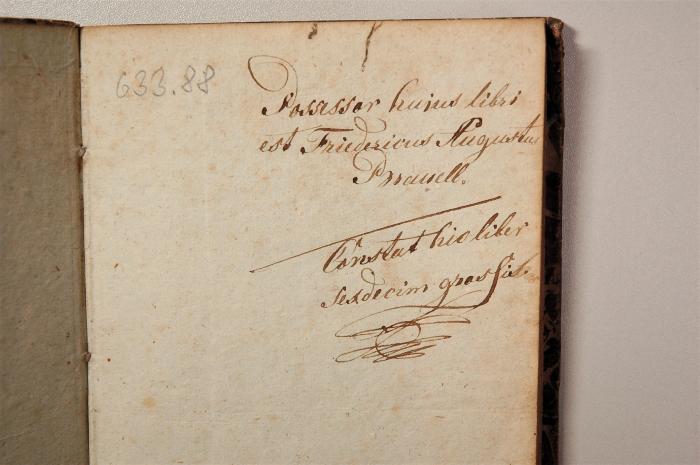 633.88
Possessor huius libri
est Friedericus Augustus
Constat hic liber
sexdecim